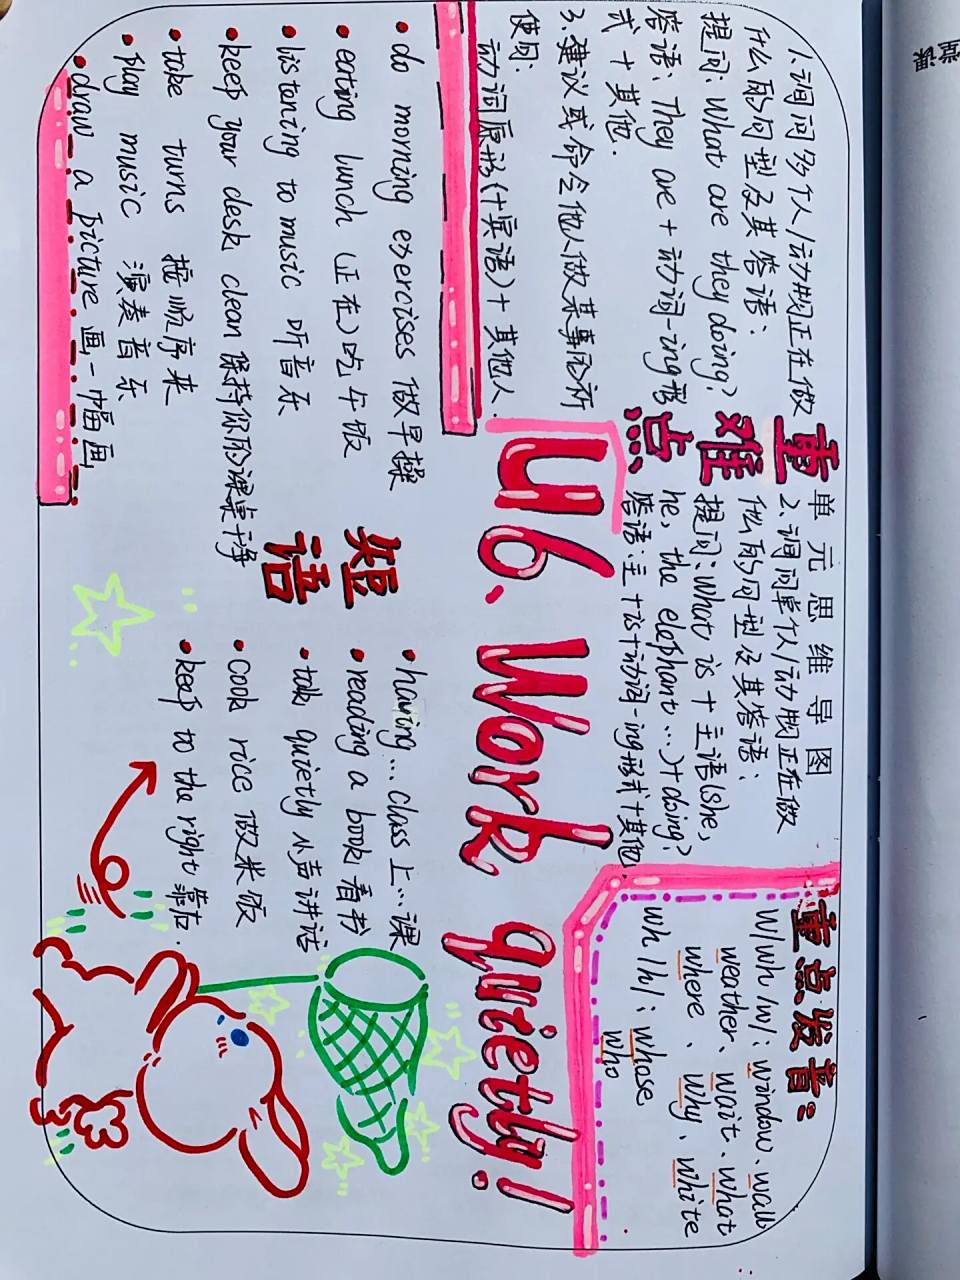 单元思维导图
重难点
1.询问多个人/动物正在做
什么的句型及其答语：
提问：What are they doing?
答语：They are + 动词-ing形
式 + 其他.
3.建议或命令他人做某事
使句：
动词原形(+宾语)+其他人.
2.询问单个人/动物正在做
什么的句型及其答语：
提问：What is + 主语(she,
he, the elephant...)+doing?
答语：主+is+动词-ing形式+其他
重点发音：
W/wh /w/：window、wall
weather、wait、what
where、why、white
wh /h/：whose
who
U6、Work quietly!
短语
• do morning exercises 做早操
• eating lunch (正在)吃午饭
• listening to music 听音乐
• keep your desk clean 保持你的课桌干净
• take turns 按顺序来
• play music 演奏音乐
• draw a picture 画一幅画
• having...class 上…课
• reading a book 看书
• talk quietly 小声讲话
• cook rice 做米饭
• keep to the right 靠右.
堂课